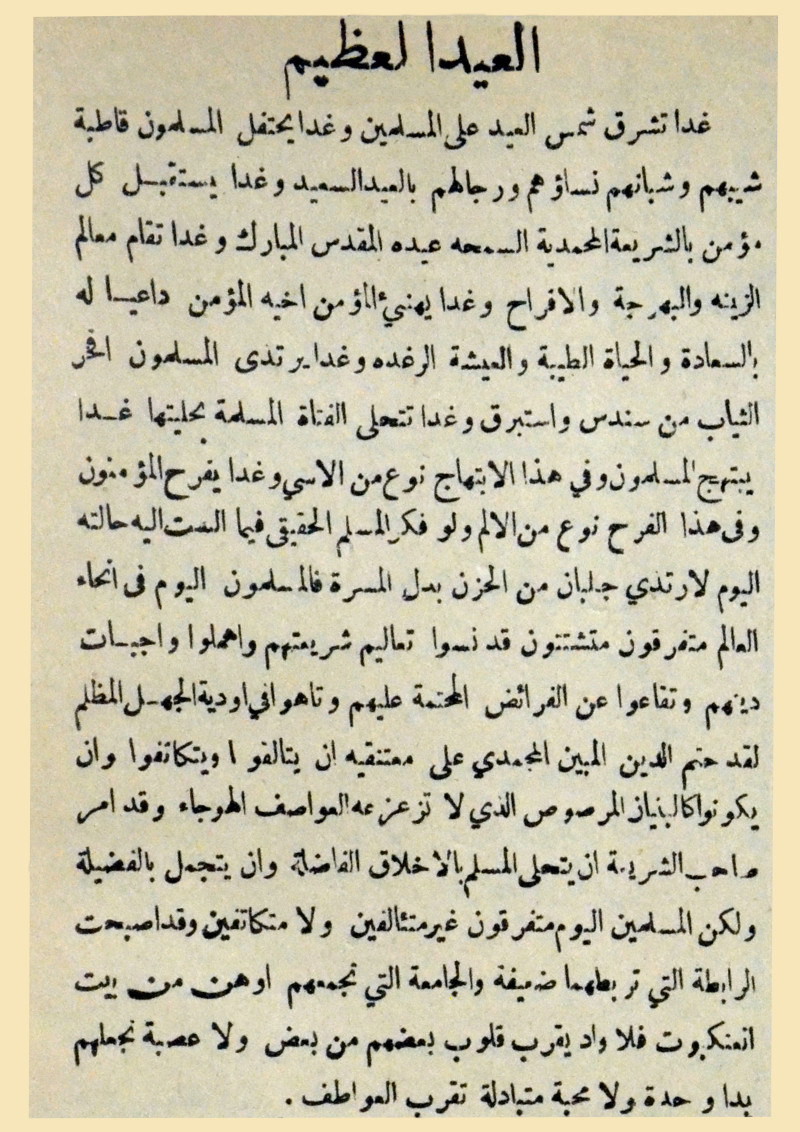 العيدا لعظيم
غدا تشرق شمس العيد على المسلمين وغدا يحتفل المسلمون قاطبة
شيبهم وشبانهم نساؤهم ورجالهم بالعيد السعيد وغدا يستقبل كل
مؤمن بالشريعة المحمدية السمحه عيده المقدس المبارك وغدا تقام معالم
الزينه والبهرجة والافراح وغدا يهنيء المؤمن اخيه المؤمن داعيا له
بالسعادة والحياة الطيبة والعيشة الرغده وغدا يرتدى المسلمون افخر
الثياب من سندس واستبرق وغدا تتحلى الفتاة المسلمة بحليتها غدا
يبتهج المسلمون وفي هذا الابتهاج نوع من الاسي وغدا يفرح المؤمنون
وفى هذا الفرح نوع من الالم ولو فكر المسلم الحقيقى فيما الست اليه حالته
اليوم لارتدي جلبان من الحزن بدل المسرة فالمسلمون اليوم فى انحاء
العالم متفرقون متشتتون قد نسوا تعاليم شريعتهم واهملوا واجبات
دينهم وتقاعوا عن الفرائض المحتمة عليهم وتاهوا في اودية الجهل المظلم
لقد حتم الدين المبين المحمدي على معتنقيه ان يتالفوا ويتكاتفوا وان
يكونوا كالبنياز المرصوص الذي لا تزعزعه العواصف الهوجاء وقد امر
صاحب الشريعة ان يتحلى المسلم بالاخلاق الفاضلة وان يتجمل بالفضيلة
ولكن المسلمين اليوم متفرقون غير متئالفين ولا متكاتفين وقد اصبحت
الرابطة التي تربطهما ضعيفة والجامعة التي تجمعهم اوهن من بيت
انعنكبوت فلا واد يقرب قلوب بعضهم من بعض ولا عصبة تجعلهم
بدا وحدة ولا محبة متبادلة تقرب العواطف .